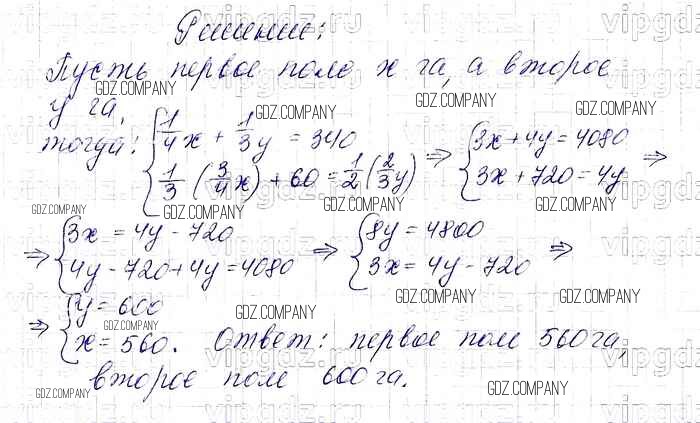 Решение:
Пусть первое поле x га, а второе
y га,
тогда: { 1/4 x + 1/3 y = 340
1/3 (3/4 x) + 60 = 1/2 (2/3 y) ⇒ { 3x + 4y = 4080
3x + 720 = 4y ⇒
⇒ { 3x = 4y - 720
4y - 720 + 4y = 4080 ⇒ { 8y = 4800
3x = 4y - 720 ⇒
⇒ { y = 600
x = 560. Ответ: первое поле 560 га,
второе поле 600 га.
GDZ.COMPANY
GDZ.COMPANY
GDZ.COMPANY
GDZ.COMPANY
GDZ.COMPANY
GDZ.COMPANY
GDZ.COMPANY
GDZ.COMPANY
GDZ.COMPANY
GDZ.COMPANY
GDZ.COMPANY
GDZ.COMPANY
GDZ.COMPANY
GDZ.COMPANY
vipgdz.ru